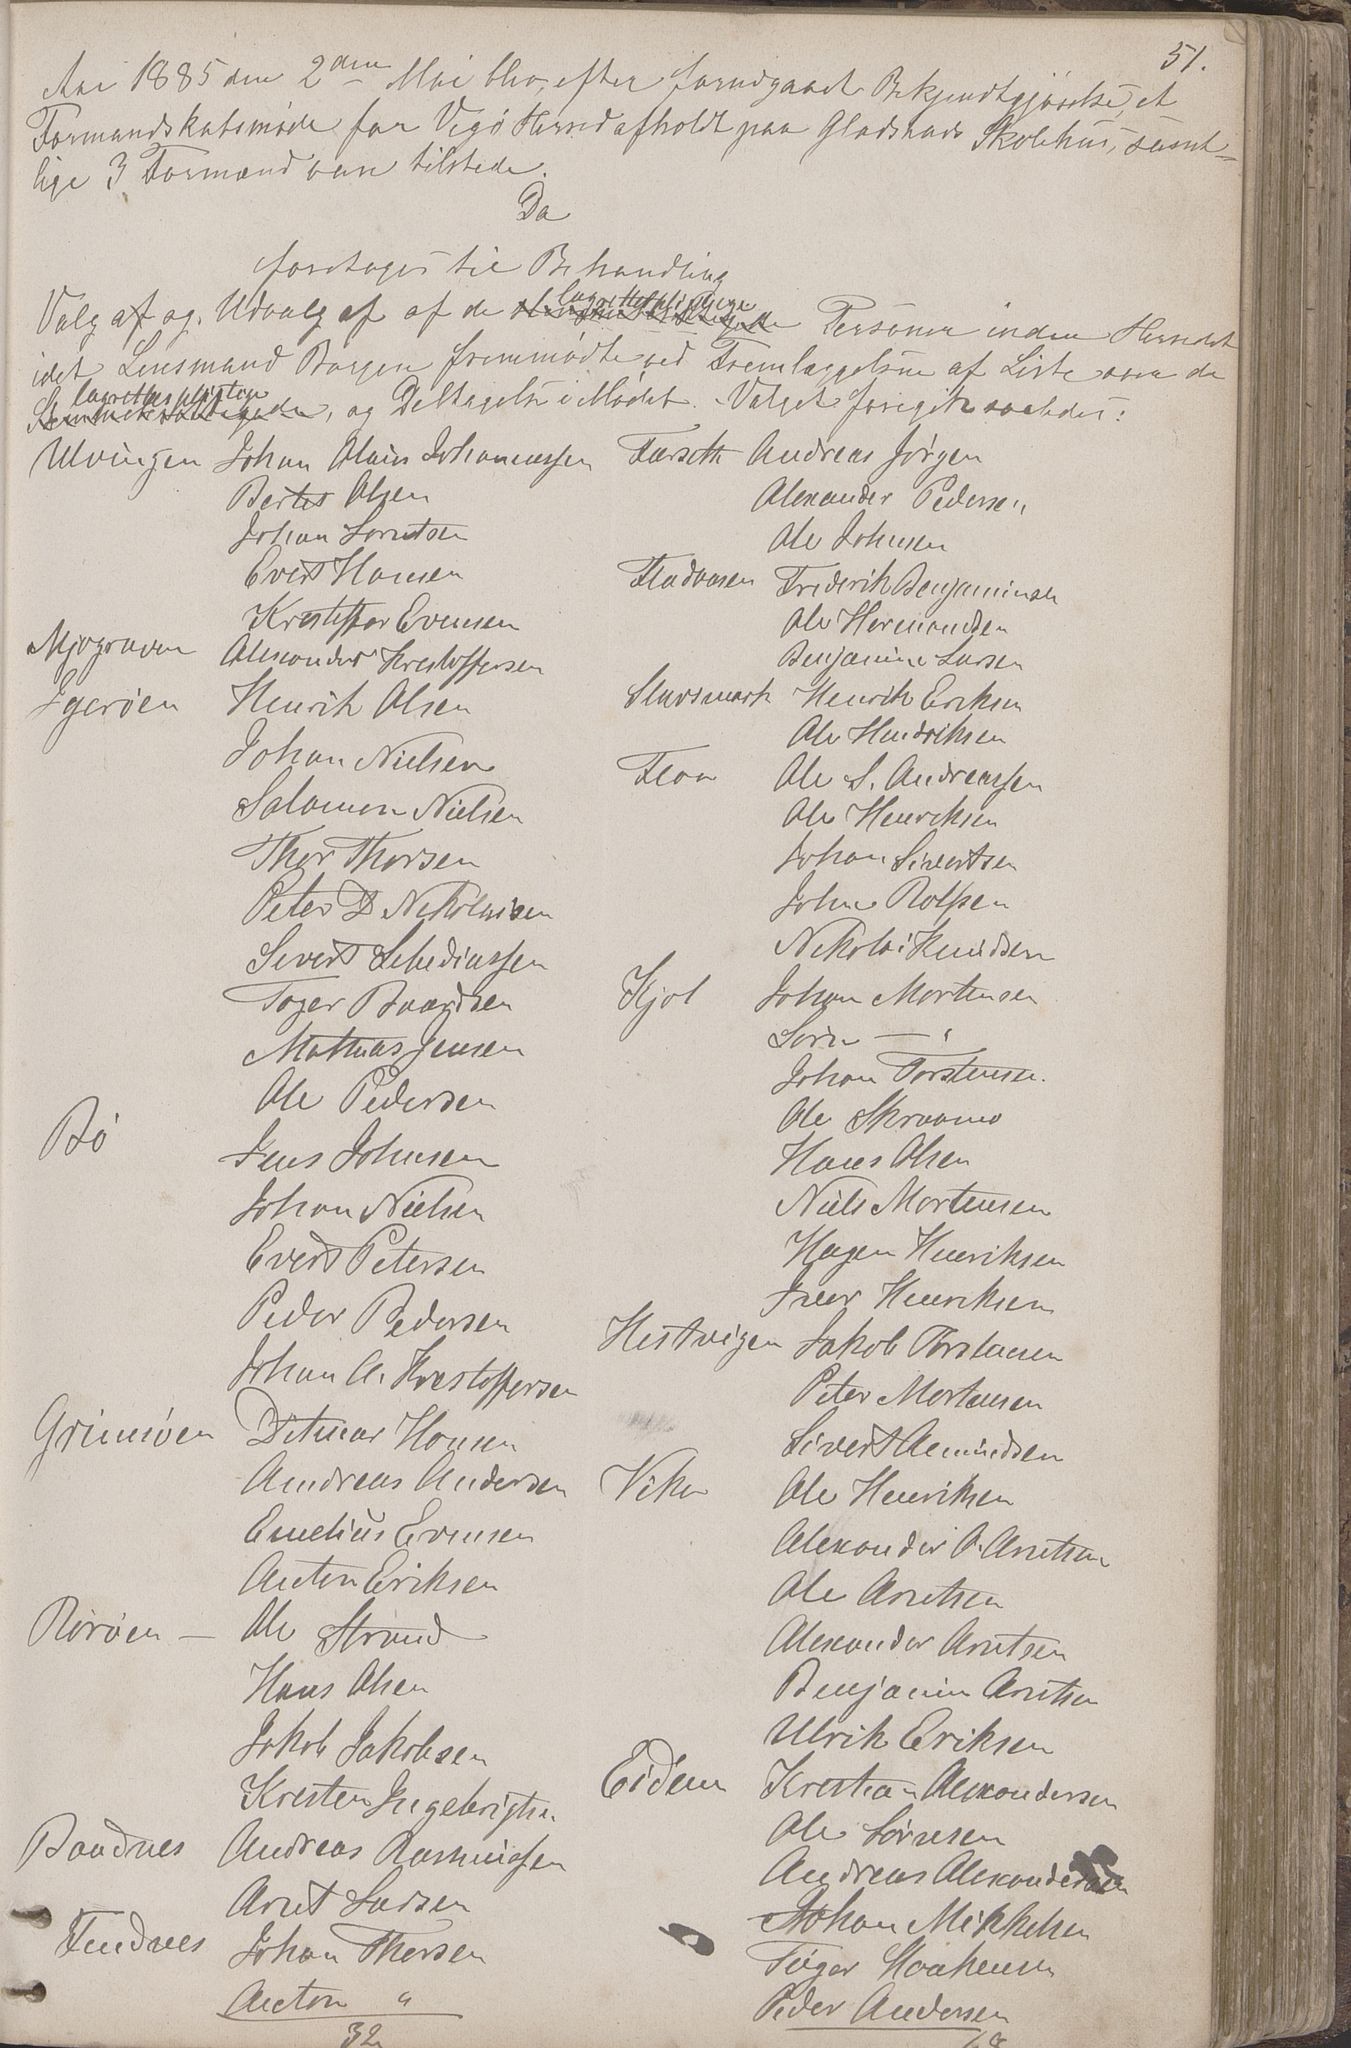 51.
Aar 1885 den 2den Mai blev, efter forudgaaet Bekjendtgjørelse, et
Formandskabsmøde for Vegø Herred afholdt paa Gladstads Skolehus, samt-
lige 3 Formænd vare tilstede.
Da
foretages til Behandling
Valg af og Udvalg af af de lagrettepligtige Personer inden Herredet
idet Lensmand Borgen fremmødte ved Fremlæggelsen af Liste over de
lagrettespligtige, og Deltagelse i Mødet. Valget foregik saaledes:
Ulvingen Johan Olaus Johannessen
Bertus Olsen
Johan Lorntsen
Evert Hansen
Kristoffer Evensen
Mjogroven Alexander Krestoffersen
Ygerøen Henrik Olsen
Johan Nielsen
Salomon Nielsen
Thor Thorsen
Peter D Nikolaisen
Sivert Sebediassen
Toger Baardsen
Mathias Jensen
Ole Pedersen
Bø Jens Johnsen
Johan Nielsen
Evert Petersen
Peder Pedersen
Johan A. Krestoffersen
Grimsøen Ditmar Hansen
Andreas Andersen
Emelius Evensen
Anton Eriksen
Rørøen — Ole Strand
Hans Olsen
Jakob Jakobsen
Kresten Ingebrigtsen
Baadnes Andreas Rasmussen
Arnt Larsen
Tendnes Johan Thorsen
Anton "
32
Færseth Andreas Jørgen
Alexander Pedersen
Ole Johnsen
Fladaasen Frederik Benjaminsen
Ole Hermandsen
Benjamin Larsen
Slavsmark Henrik Eriksen
Ole Hendriksen
Floa Ole S. Andreassen
Ole Henriksen
Johan Sivertsen
John Rolfsen
Nikolai Knudsen
Kjøl Johan Mortensen
Sørn — "
Johan Torstensen
Ole Skraamo
Hans Olsen
Niels Mortensen
Hagen Henriksen
Iver Henriksen
Hestvigen Jakob Torstensen
Peter Mortensen
Sivert Amundsen
Viken Ole Henriksen
Alexander O. Arntsen
Ole Arntsen
Alexander Arntsen
Benjamin Arntsen
Ulrik Eriksen
Eidem Krestian Alexandersen
Ole Sørnesen
Andreas Alexandersen
Johan Mikkelsen
Tøger Haakensen
Peder Andersen